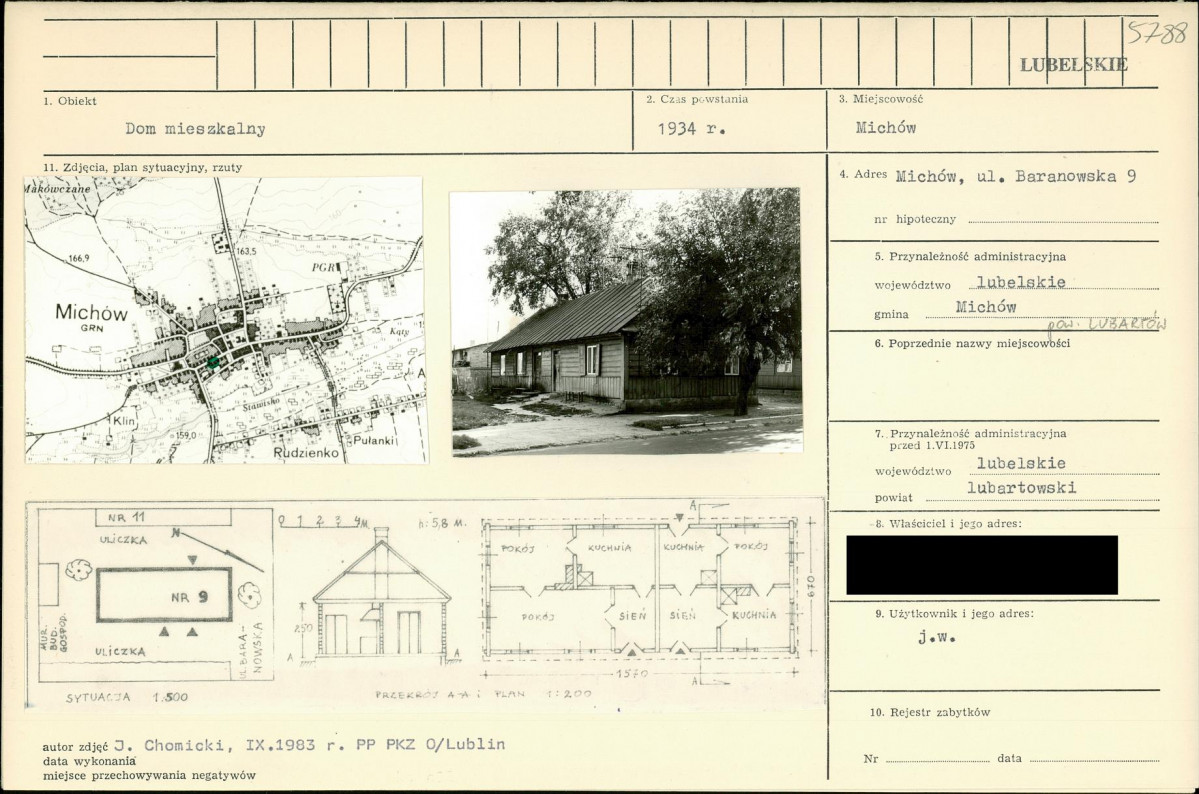 5788
LUBELSKIE
1. Obiekt
Dom mieszkalny
2. Czas powstania
1934 r.
3. Miejscowość
Michów
11. Zdjęcia, plan sytuacyjny, rzuty
4. Adres Michów, ul. Baranowska 9
nr hipoteczny
5. Przynależność administracyjna
województwo lubelskie
gmina Michów
pow. LUBARTÓW
6. Poprzednie nazwy miejscowości
7. Przynależność administracyjna
przed 1.VI.1975
województwo lubelskie
powiat lubartowski
8. Właściciel i jego adres:
9. Użytkownik i jego adres:
j.w.
10. Rejestr zabytków
Nr data
Makówczane
166,9
163,5
PGR
Michów
GRN
Kąty
Stawisko
Klin
159,0
Pułanki
Rudzienko
NR 11
ULICZKA
N
NR 9
MUR.
BUD.
GOSPOD.
ULICZKA
UL. BARA-
NOWSKA
SYTUACJA 1:500
0 1 2 3 4 M.
h: 5,8 M.
250
A A
PRZEKRÓJ A-A i PLAN 1:200
A
POKÓJ KUCHNIA KUCHNIA POKÓJ
POKÓJ SIEŃ SIEŃ KUCHNIA
670
1570
A
autor zdjęć J. Chomicki, IX.1983 r. PP PKZ O/Lublin
data wykonania
miejsce przechowywania negatywów